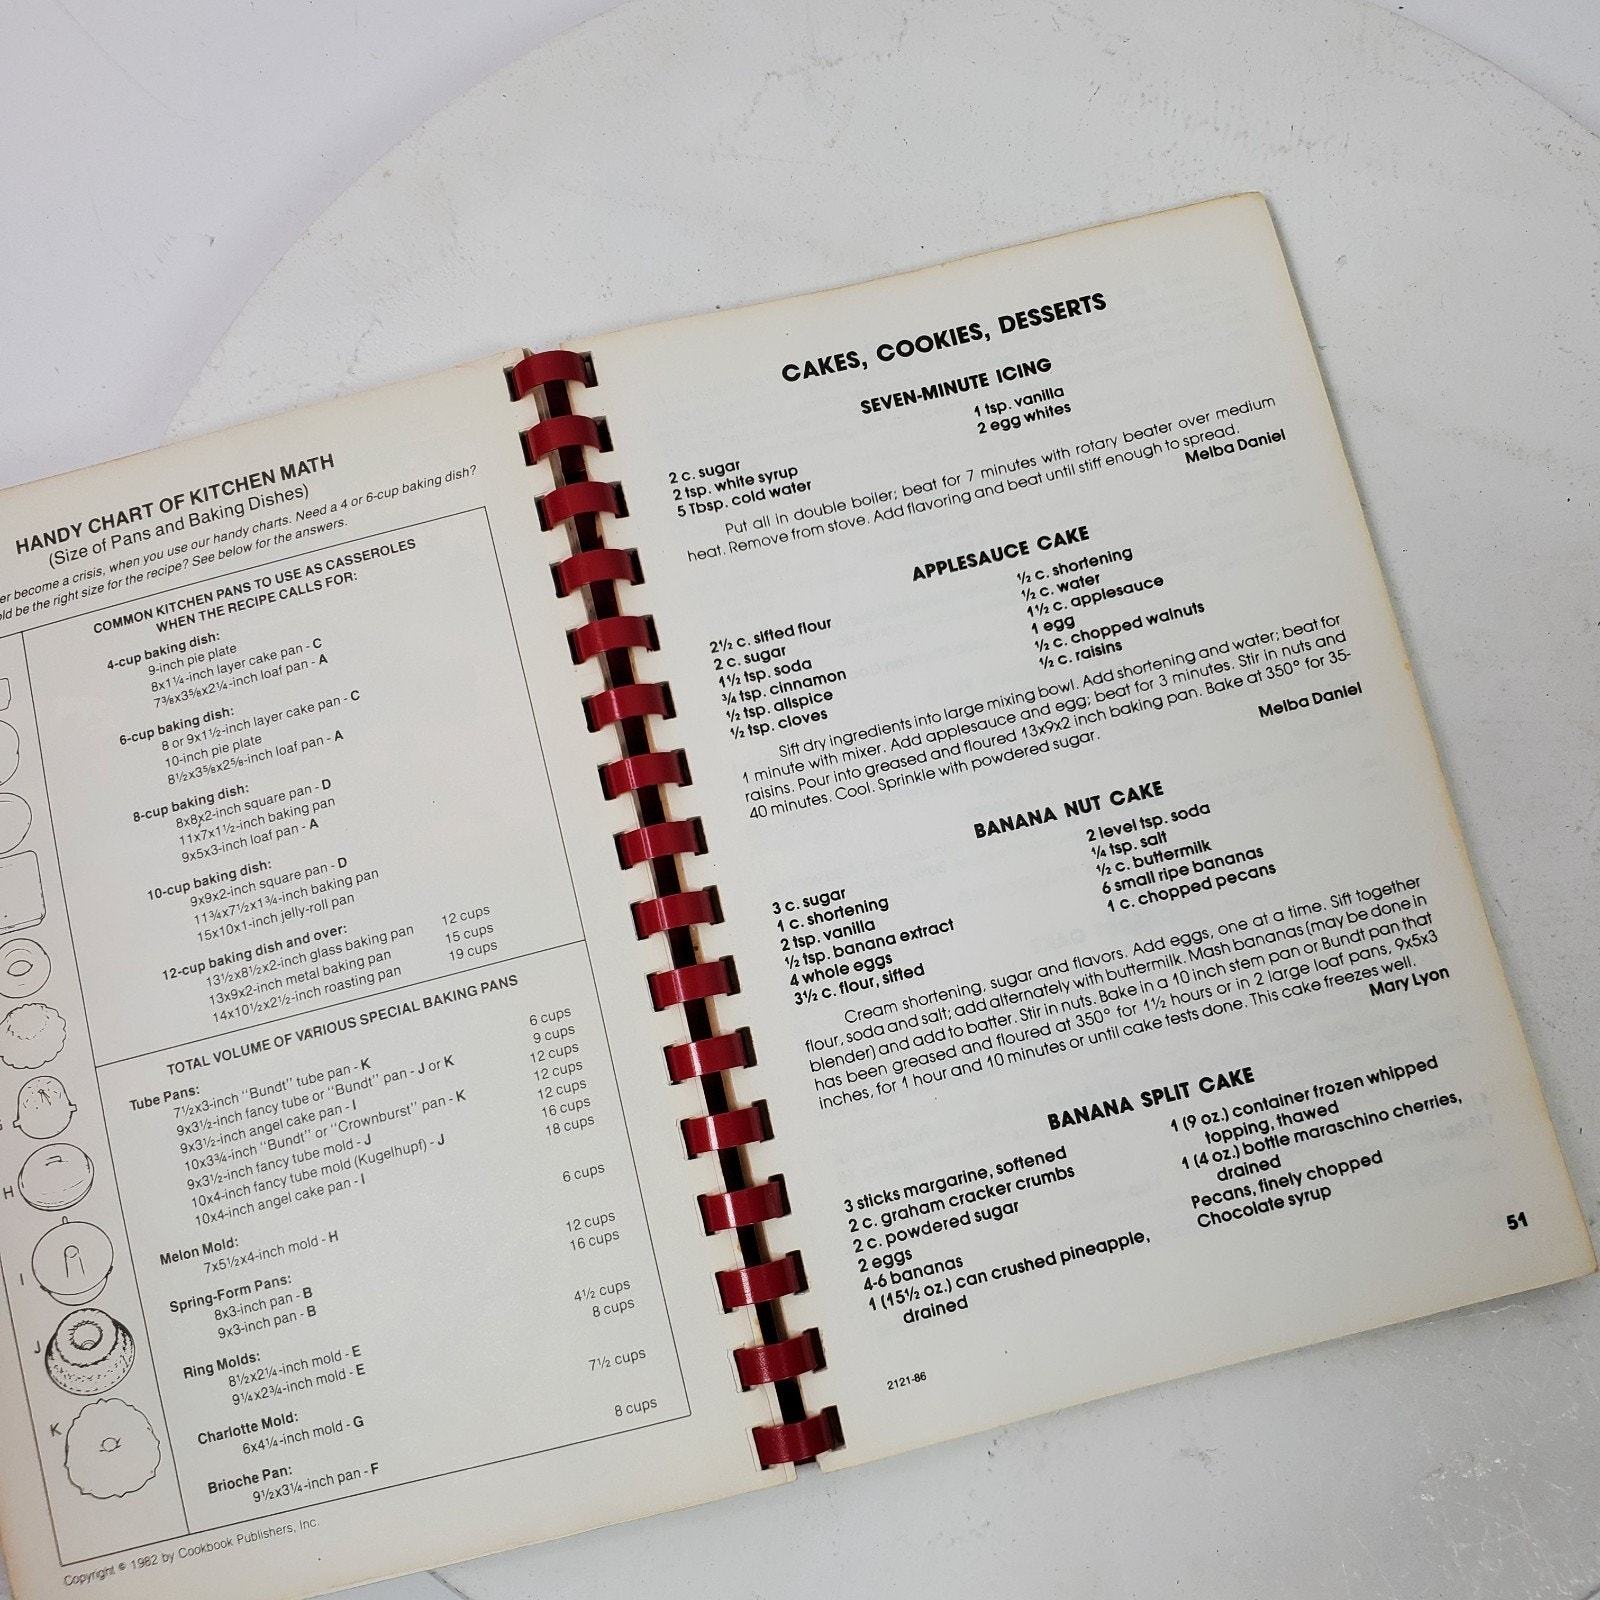 HANDY CHART OF KITCHEN MATH
(Size of Pans and Baking Dishes)
er become a crisis, when you use our handy charts. Need a 4 or 6-cup baking dish?
old be the right size for the recipe? See below for the answers.
COMMON KITCHEN PANS TO USE AS CASSEROLES
WHEN THE RECIPE CALLS FOR:
4-cup baking dish:
9-inch pie plate
8x1¼-inch layer cake pan - C
7⅜x3⅝x2¼-inch loaf pan - A
6-cup baking dish:
8 or 9x1½-inch layer cake pan - C
10-inch pie plate
8½x3⅝x2⅝-inch loaf pan - A
8-cup baking dish:
8x8x2-inch square pan - D
11x7x1½-inch baking pan
9x5x3-inch loaf pan - A
10-cup baking dish:
9x9x2-inch square pan - D
11¾x7½x1¾-inch baking pan
15x10x1-inch jelly-roll pan
12-cup baking dish and over:
13½x8½x2-inch glass baking pan 12 cups
13x9x2-inch metal baking pan 15 cups
14x10½x2½-inch roasting pan 19 cups
TOTAL VOLUME OF VARIOUS SPECIAL BAKING PANS
Tube Pans:
7½x3-inch "Bundt" tube pan - K 6 cups
9x3½-inch fancy tube or "Bundt" pan - J or K 9 cups
9x3½-inch angel cake pan - I 12 cups
10x3¾-inch "Bundt" or "Crownburst" pan - K 12 cups
9x3½-inch fancy tube mold - J 12 cups
10x4-inch fancy tube mold (Kugelhupf) - J 16 cups
10x4-inch angel cake pan - I 18 cups
Melon Mold:
7x5½x4-inch mold - H 6 cups
Spring-Form Pans:
8x3-inch pan - B 12 cups
9x3-inch pan - B 16 cups
Ring Molds:
8½x2¼-inch mold - E 4½ cups
9¼x2¾-inch mold - E 8 cups
Charlotte Mold:
6x4¼-inch mold - G 7½ cups
Brioche Pan:
9½x3¼-inch pan - F 8 cups
H
I
J
K
Copyright © 1982 by Cookbook Publishers, Inc.
CAKES, COOKIES, DESSERTS
SEVEN-MINUTE ICING
2 c. sugar
2 tsp. white syrup
5 Tbsp. cold water
1 tsp. vanilla
2 egg whites
Put all in double boiler; beat for 7 minutes with rotary beater over medium
heat. Remove from stove. Add flavoring and beat until stiff enough to spread.
Melba Daniel
APPLESAUCE CAKE
2½ c. sifted flour
2 c. sugar
1½ tsp. soda
¾ tsp. cinnamon
½ tsp. allspice
½ tsp. cloves
½ c. shortening
½ c. water
1½ c. applesauce
1 egg
½ c. chopped walnuts
½ c. raisins
Sift dry ingredients into large mixing bowl. Add shortening and water; beat for
1 minute with mixer. Add applesauce and egg; beat for 3 minutes. Stir in nuts and
raisins. Pour into greased and floured 13x9x2 inch baking pan. Bake at 350° for 35-
40 minutes. Cool. Sprinkle with powdered sugar.
Melba Daniel
BANANA NUT CAKE
3 c. sugar
1 c. shortening
2 tsp. vanilla
½ tsp. banana extract
4 whole eggs
3½ c. flour, sifted
2 level tsp. soda
¼ tsp. salt
½ c. buttermilk
6 small ripe bananas
1 c. chopped pecans
Cream shortening, sugar and flavors. Add eggs, one at a time. Sift together
flour, soda and salt; add alternately with buttermilk. Mash bananas (may be done in
blender) and add to batter. Stir in nuts. Bake in a 10 inch stem pan or Bundt pan that
has been greased and floured at 350° for 1½ hours or in 2 large loaf pans, 9x5x3
inches, for 1 hour and 10 minutes or until cake tests done. This cake freezes well.
Mary Lyon
BANANA SPLIT CAKE
3 sticks margarine, softened
2 c. graham cracker crumbs
2 c. powdered sugar
2 eggs
4-6 bananas
1 (15½ oz.) can crushed pineapple,
drained
1 (9 oz.) container frozen whipped
topping, thawed
1 (4 oz.) bottle maraschino cherries,
drained
Pecans, finely chopped
Chocolate syrup
2121-86
51